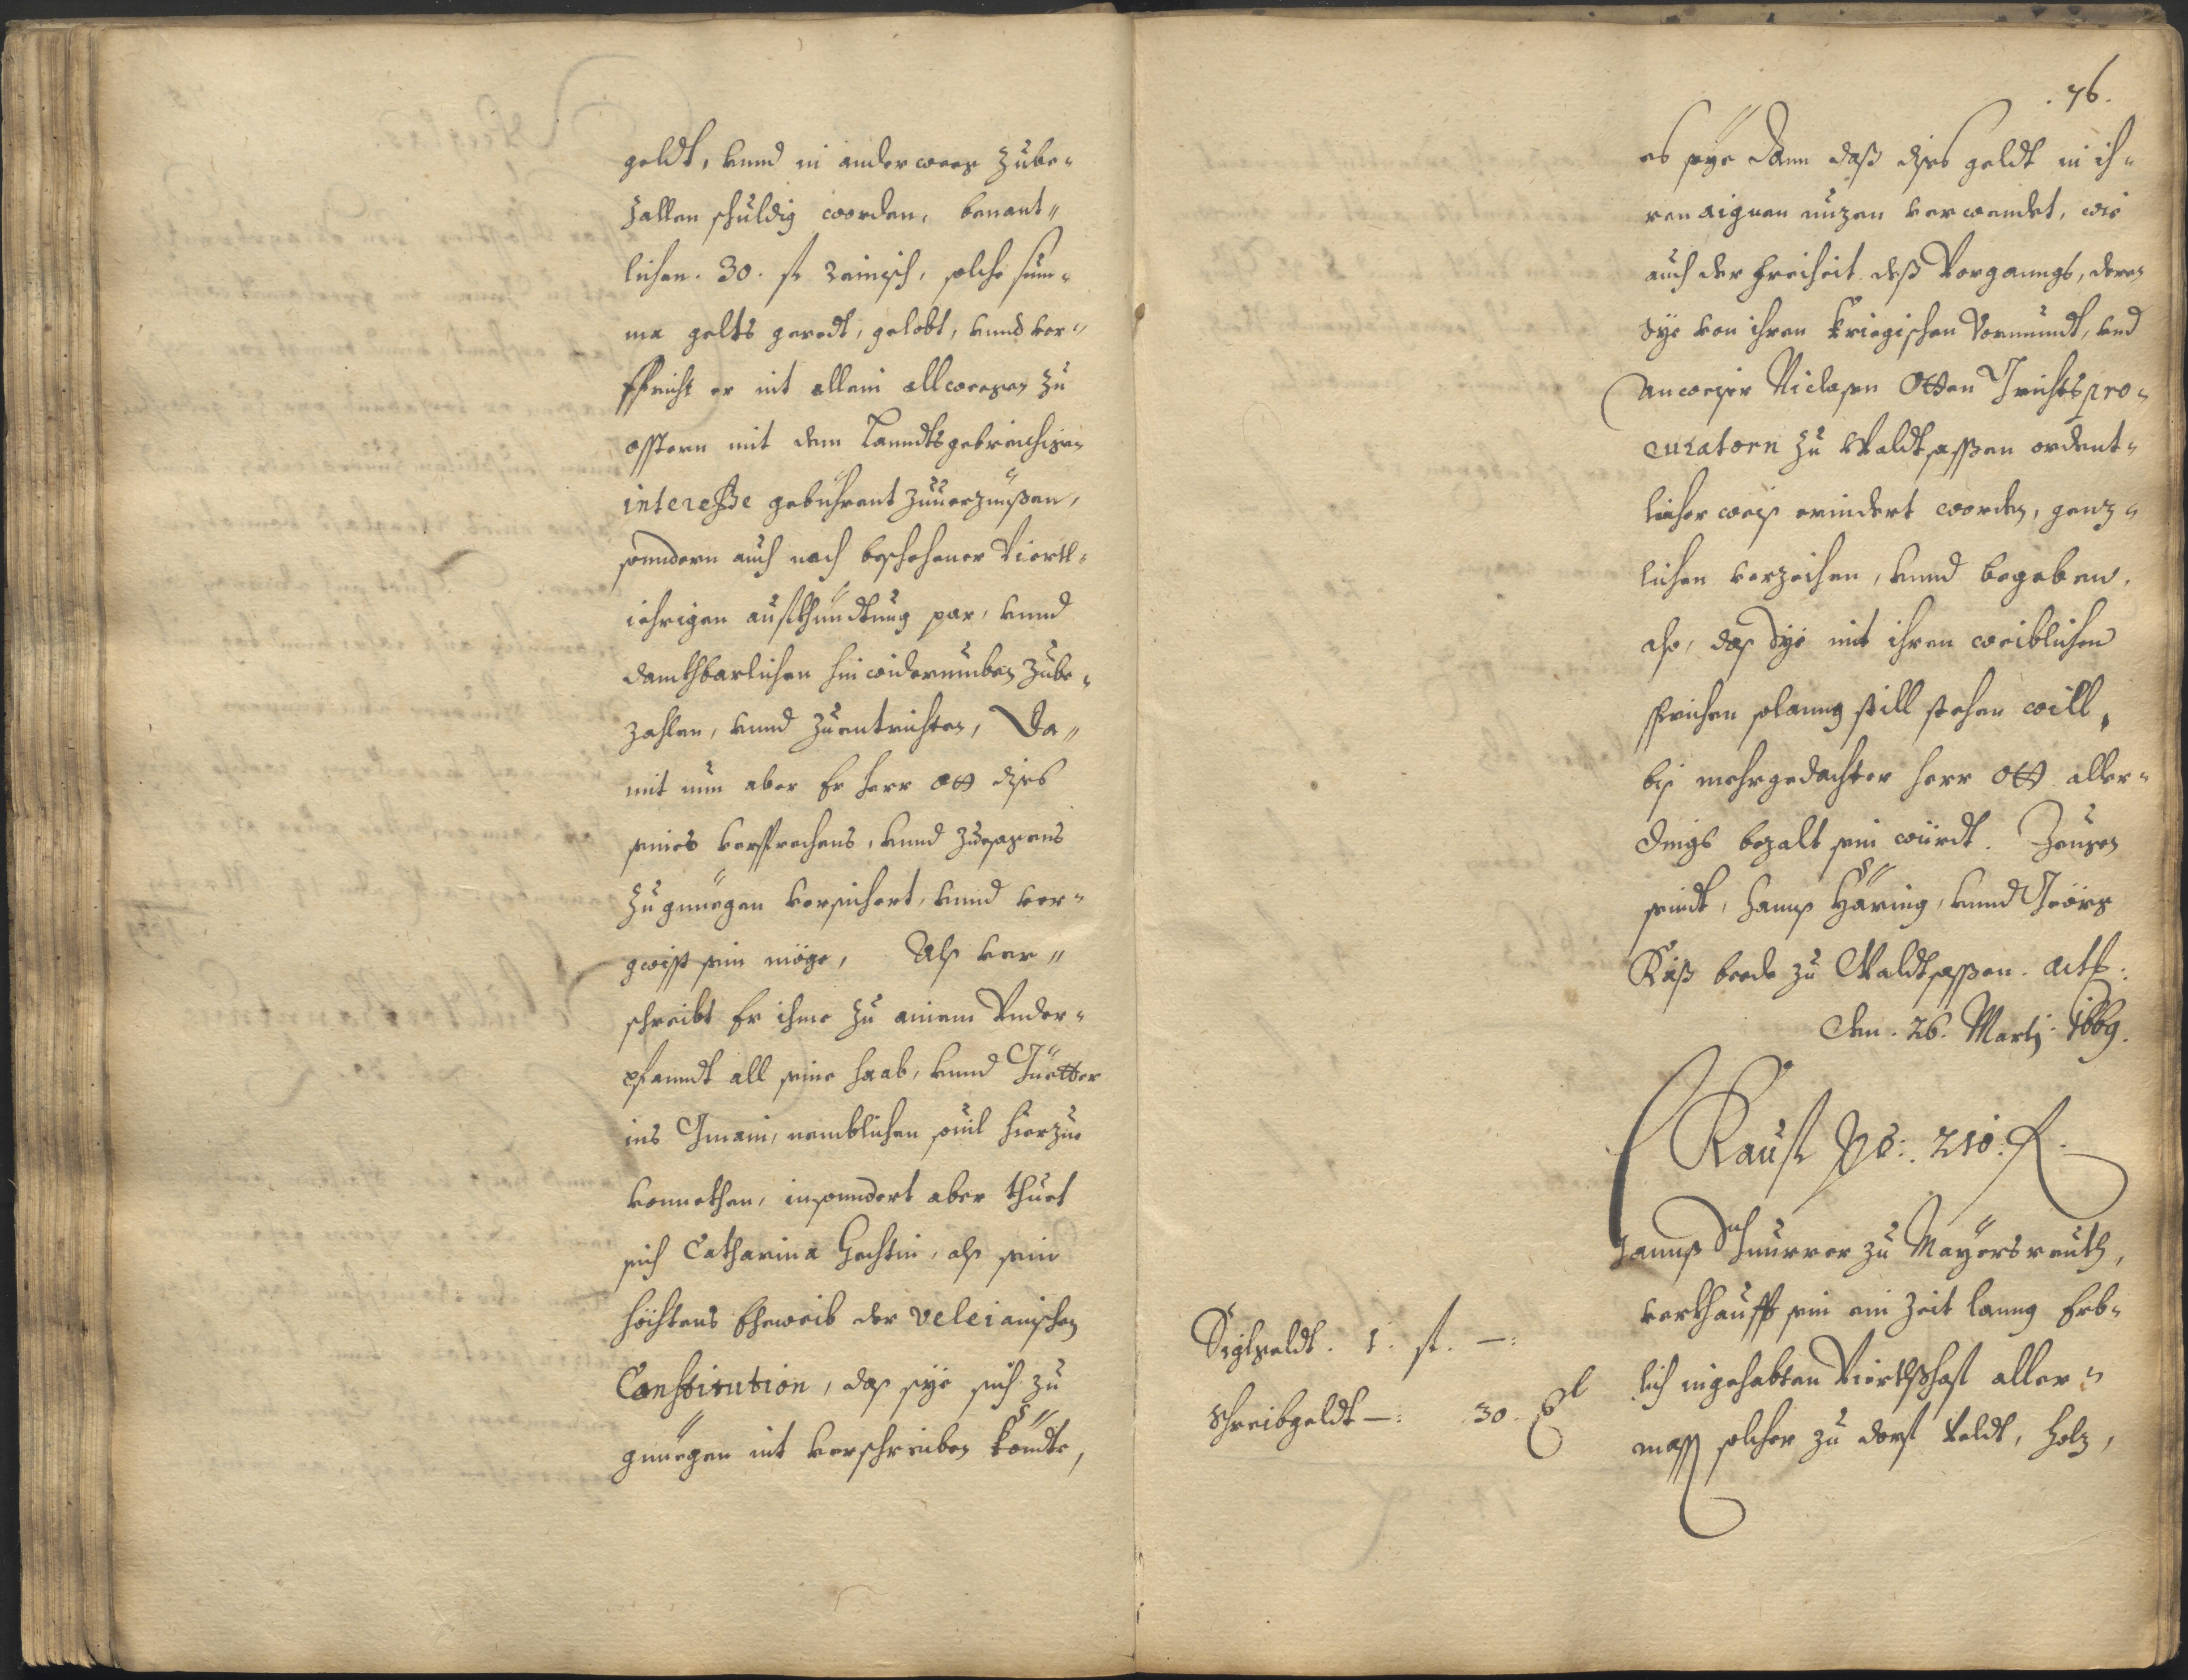 geldt, vnnd in anderweeg zube-
zallen schuldig worden, benant"
lichen. 30. fl. Reinisch, solche sum-
ma gelts geredt, gelobt, vnnd ver-
spricht er nit allein allweegen zu
osstern mit dem Lanndtsgebreichigen
interesse gebührent zuuerzinßen,
sonndern auch nach beschehener Viertl-
iehrigen auffkhündtung par, vnnd
danckhbarlichen hinwiderumben zube-
zahlen, vnnd zuentrichten, Da"
mit nun aber Er herr Ott dises
seines versprechens, vnnd zuesagens
zu gnüegen versichert, vnnd ver-
gwisst sein möge, Alß ver"
schreibt Er ihme zu ainem Vnder-
pfanndt all seine haab, vnnd Güetter
ins Gmain, nemblichen souil hierzue
vonnethen, insonndert aber thuet
sich Catharina Hechtin, alß sein
Hechtens Eheweib der Veleianischen
Constitution, daß sye sich zu
gnüegen nit verschreiben köndte,
.76.
es seye dann daß dises geldt in ih-
ren aignen nuzen verwendet, wie
auch der freiheit deß Vorganngs, deren
Sye von ihren Kriegischen Vormundt, vnd
Anweiser Niclasen Otten Grichtspro-
curatorn zu Waldtsassen ordent-
licher weiß erindert worden, genz-
lichen verzeihen, vnnd begeben,
also, daß Sye mit ihren weiblichen
sprichen solanng still stehen will,
biß mehrgedachter herr Ott aller-
dings bezalt sein würdt. Zeugen
seindt, Hannß Häring, vnnd Geörg
Räß beede zu Waldtsassen. Actum:
den. 26. Martij. 1669.
Kauff per: 210. fl.
Hannß Schnurrer zu Mayersreuth,
verkhaufft sein ein Zeit lanng Erb-
lich ingehabten Viertlshof aller-
mass solcher zu dorf veldt, holz,
Siglgeldt. 1. fl. —:
Schreibgeldt —: 30. kr